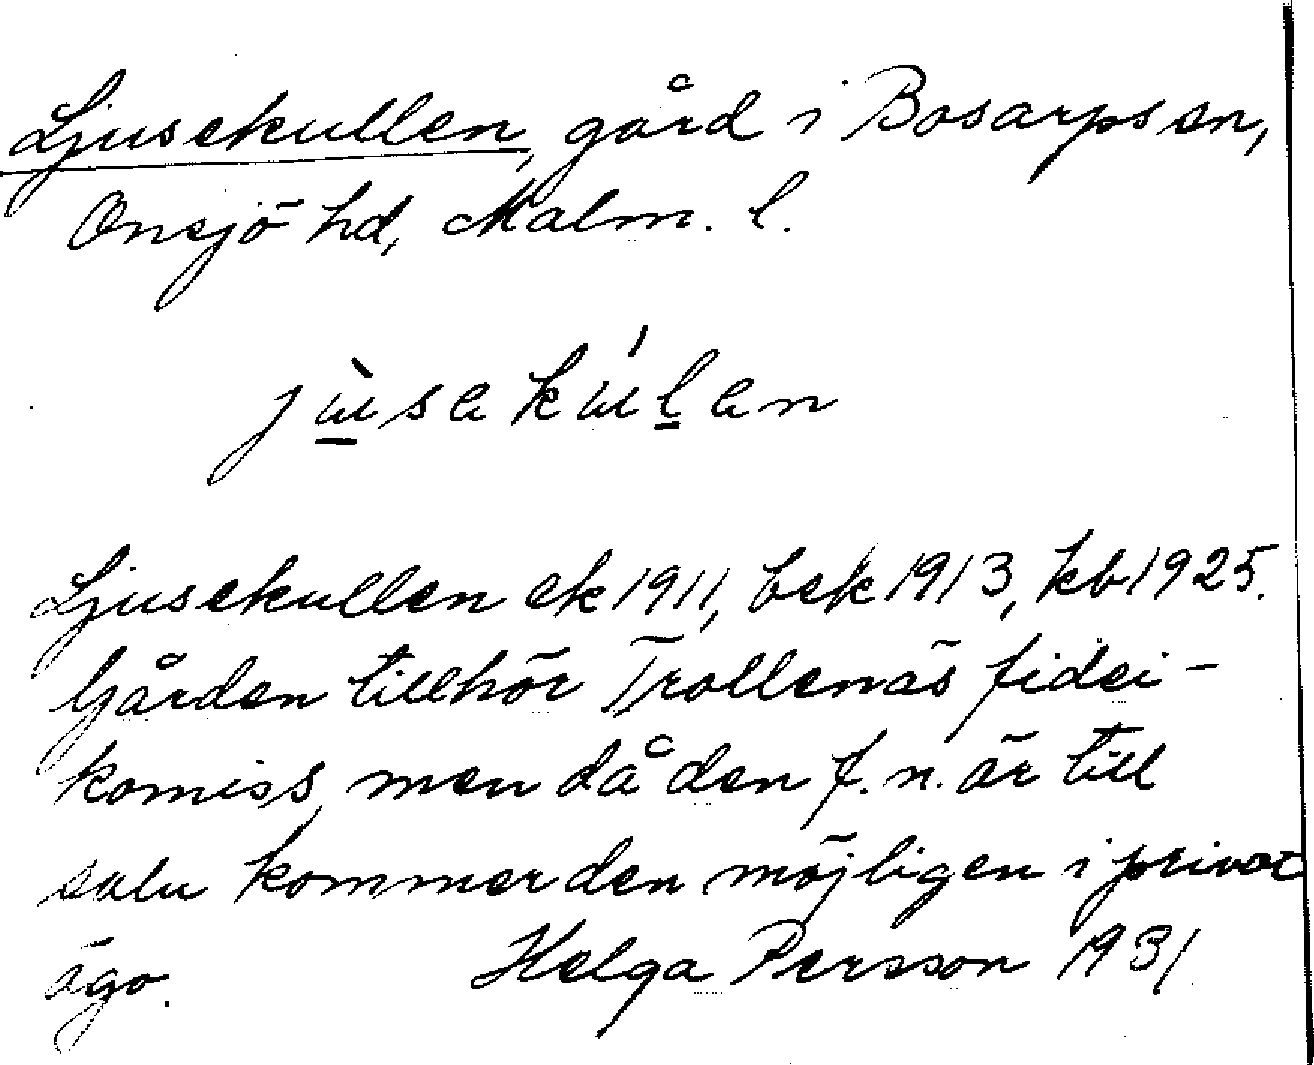 Ljusekullen, gård i Bosarps sn,
Onsjö hd, Malm. l.
jùsekúlen
Ljusekullen ek 1911, bek 1913, kb 1925.
Gården tillhör Trollenäs fidei-
komiss, men då den f. n. är till
salu kommer den möjligen i privat
ägo. Helga Persson 1931